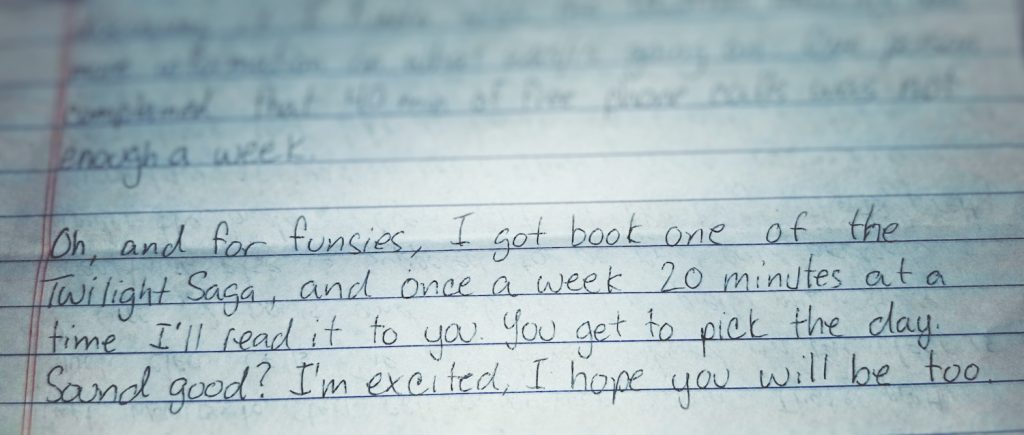 more information on what going on. One person
complained that 40 min of free phone calls was not
enough a week.
Oh, and for funsies, I got book one of the
Twilight Saga, and once a week 20 minutes at a
time I'll read it to you. You get to pick the day.
Sound good? I'm excited, I hope you will be too.